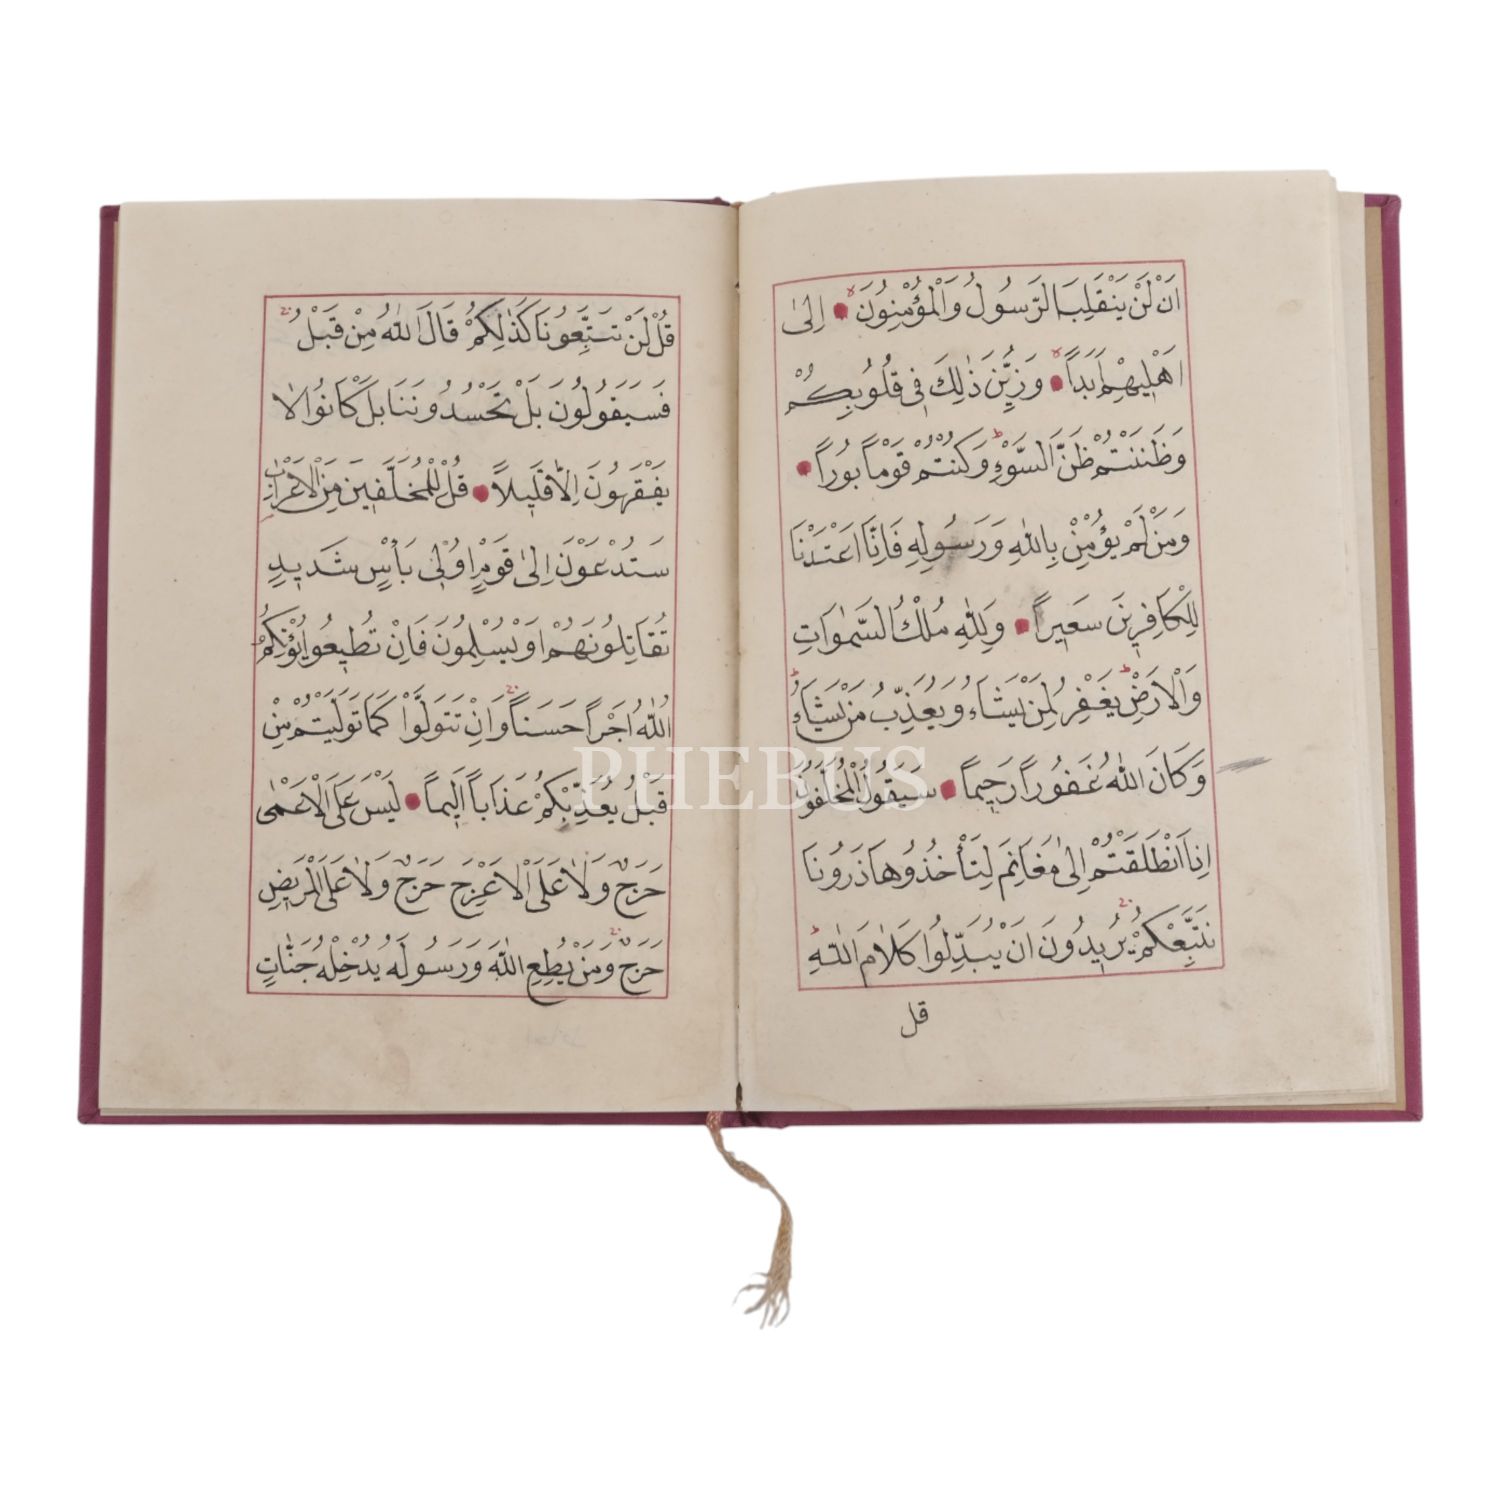 اَنْ لَنْ يَنْقَلِبَ الرَّسُولُ وَالْمُؤْمِنُونَ اِلٰى
اَهْلِيهِمْ اَبَداً وَزُيِّنَ ذٰلِكَ فِي قُلُوبِكُمْ
وَظَنَنْتُمْ ظَنَّ السَّوْءِ وَكُنْتُمْ قَوْماً بُوراً
وَمَنْ لَمْ يُؤْمِنْ بِاللّٰهِ وَرَسُولِهِ فَاِنَّا اَعْتَدْنَا
لِلْكَافِرِينَ سَعِيراً وَلِلّٰهِ مُلْكُ السَّمٰوَاتِ
وَالْاَرْضِ يَغْفِرُ لِمَنْ يَشَاءُ وَيُعَذِّبُ مَنْ يَشَاءُ
وَكَانَ اللّٰهُ غَفُوراً رَحِيماً سَيَقُولُ الْمُخَلَّفُونَ
اِذَا انْطَلَقْتُمْ اِلٰى مَغَانِمَ لِتَأْخُذُوهَا ذَرُونَا
نَتَّبِعْكُمْ يُرِيدُونَ اَنْ يُبَدِّلُوا كَلَامَ اللّٰهِ
قل
قُلْ لَنْ تَتَّبِعُونَا كَذٰلِكُمْ قَالَ اللّٰهُ مِنْ قَبْلُ
فَسَيَقُولُونَ بَلْ تَحْسُدُونَنَا بَلْ كَانُوا لَا
يَفْقَهُونَ اِلَّا قَلِيلاً قُلْ لِلْمُخَلَّفِينَ مِنَ الْاَعْرَابِ
سَتُدْعَوْنَ اِلٰى قَوْمٍ اُولِي بَأْسٍ شَدِيدٍ
تُقَاتِلُونَهُمْ اَوْ يُسْلِمُونَ فَاِنْ تُطِيعُوا يُؤْتِكُمُ
اللّٰهُ اَجْراً حَسَناً وَاِنْ تَتَوَلَّوْا كَمَا تَوَلَّيْتُمْ مِنْ
قَبْلُ يُعَذِّبْكُمْ عَذَاباً اَلِيماً لَيْسَ عَلَى الْاَعْمٰى
حَرَجٌ وَلَا عَلَى الْاَعْرَجِ حَرَجٌ وَلَا عَلَى الْمَرِيضِ
حَرَجٌ وَمَنْ يُطِعِ اللّٰهَ وَرَسُولَهُ يُدْخِلْهُ جَنَّاتٍ
PHEBUS